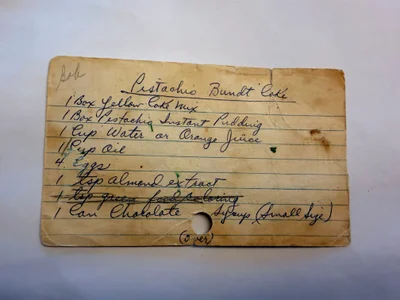 Pistachio Bundt Cake
1 Box Yellow Cake Mix
1 Box Pistachio Instant Pudding
1 Cup Water or Orange Juice
1 Cup Oil
4 Eggs
1 tsp almond extract
1 tsp green food coloring
1 Can Chocolate Syrup (Small Size)
(over)